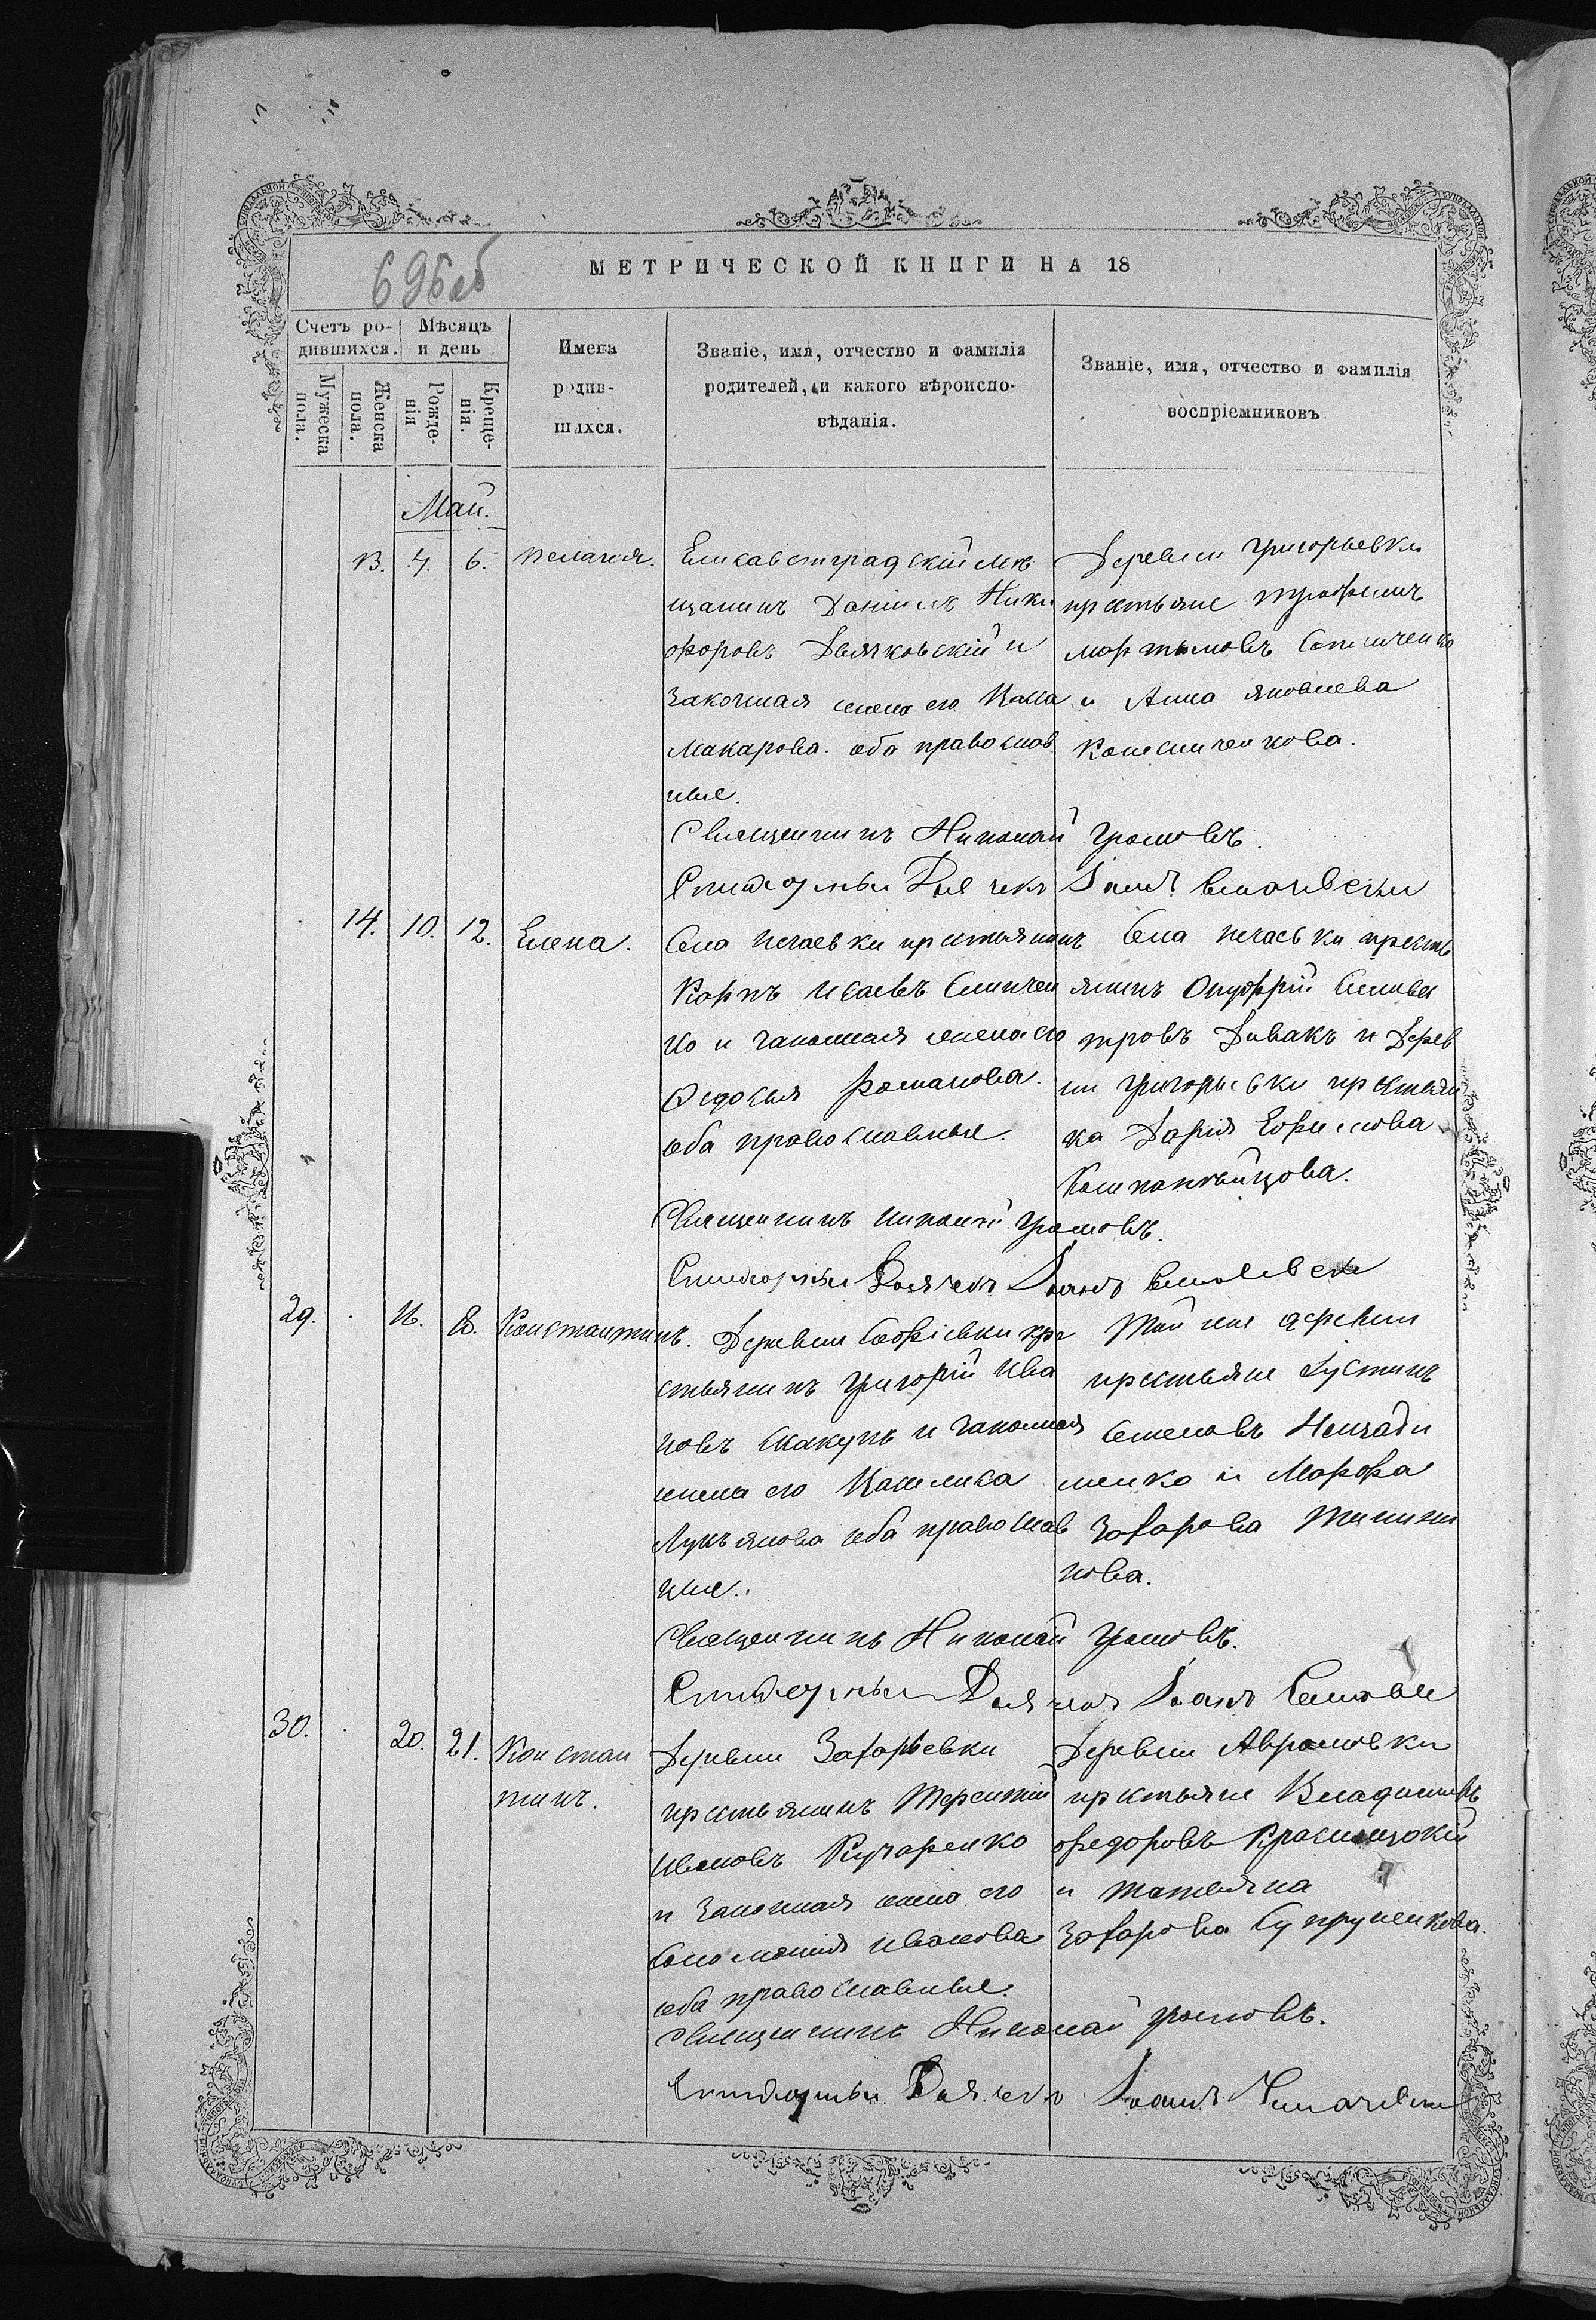 696об
МЕТРИЧЕСКОЙ КНИГИ НА 18
Счетъ ро-
дившихся.
Мѣсяцъ
и день
Мужеска
пола.
Женска
пола.
Рожде-
нія
Креще-
нія.
Имена
родив-
шихся.
Званіе, имя, отчество и фамилія
родителей, и какого вѣроиспо-
вѣданія.
Званіе, имя, отчество и фамилія
воспріемниковъ
Май.
13. 4. 6. Пелагея.
Елисаветградскій мѣ
щанинъ Даніилъ Ники
форовъ Дьячковскій и
законная жена его
Макарова. оба православ
ные.
Деревни Григорьевки
крестьяне Трофимъ
и Анна Яковлева
Колесниченкова.
Священникъ Николай Громовъ.
Дьячекъ Іоаннъ
14. 10. 12. Елена.
Села Нечаевки крестьянинъ
Карпъ Исаевъ
ко и законная жена его
Федосья Романова.
оба православные.
Села Нечаевки кресть
янинъ Онуфрій Сильве
стровъ Дивакъ и Дерев
ни Григорьевки крестьян
ка Дарія Ефимова
Компанѣйцова.
Священникъ Николай Громовъ.
Дьячекъ Іоаннъ
29. 16. 18. Константинъ.
Деревни Софіевки кре
стьянинъ Григорій Ива
новъ Скакунъ и законная
жена его Василиса
Лукьянова оба православ
ные.
Той же деревни
крестьяне Іустинъ
Семеновъ
менко и Марфа
Захарова
нова.
Священникъ Николай Громовъ.
Дьячекъ Іоаннъ
30. 20. 21. Констан
тинъ.
Деревни Захарьевки
крестьянинъ Терентій
Ивановъ Кучеренко
и законная жена его
Соломонія Иванова
оба православные.
Деревни Аврамовки
крестьяне Владиміръ
Федоровъ
и Татьяна
Захарова Супруненкова.
Священникъ Николай Громовъ.
Дьячекъ Іоаннъ